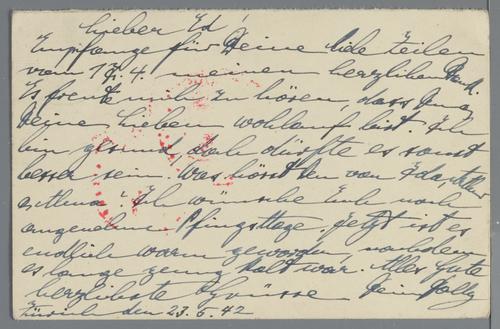 Lieber Ed!
Empfange für Deine liebe Zeilen
vom 17.4. meinen herzlichen Dank.
Es freute mich zu hören, dass Du u.
Deine Lieben wohlauf bist. Ich
bin gesund, doch dürfte es sonst
besser sein. Was hörst Du von
Ich wünsche Euch noch
angenehme Pfingsttage. Jetzt ist es
endlich warm geworden, nachdem
es lange genug kalt war. Alles Gute
herzlichste Grüsse Dein
Zürich den 23.5.42